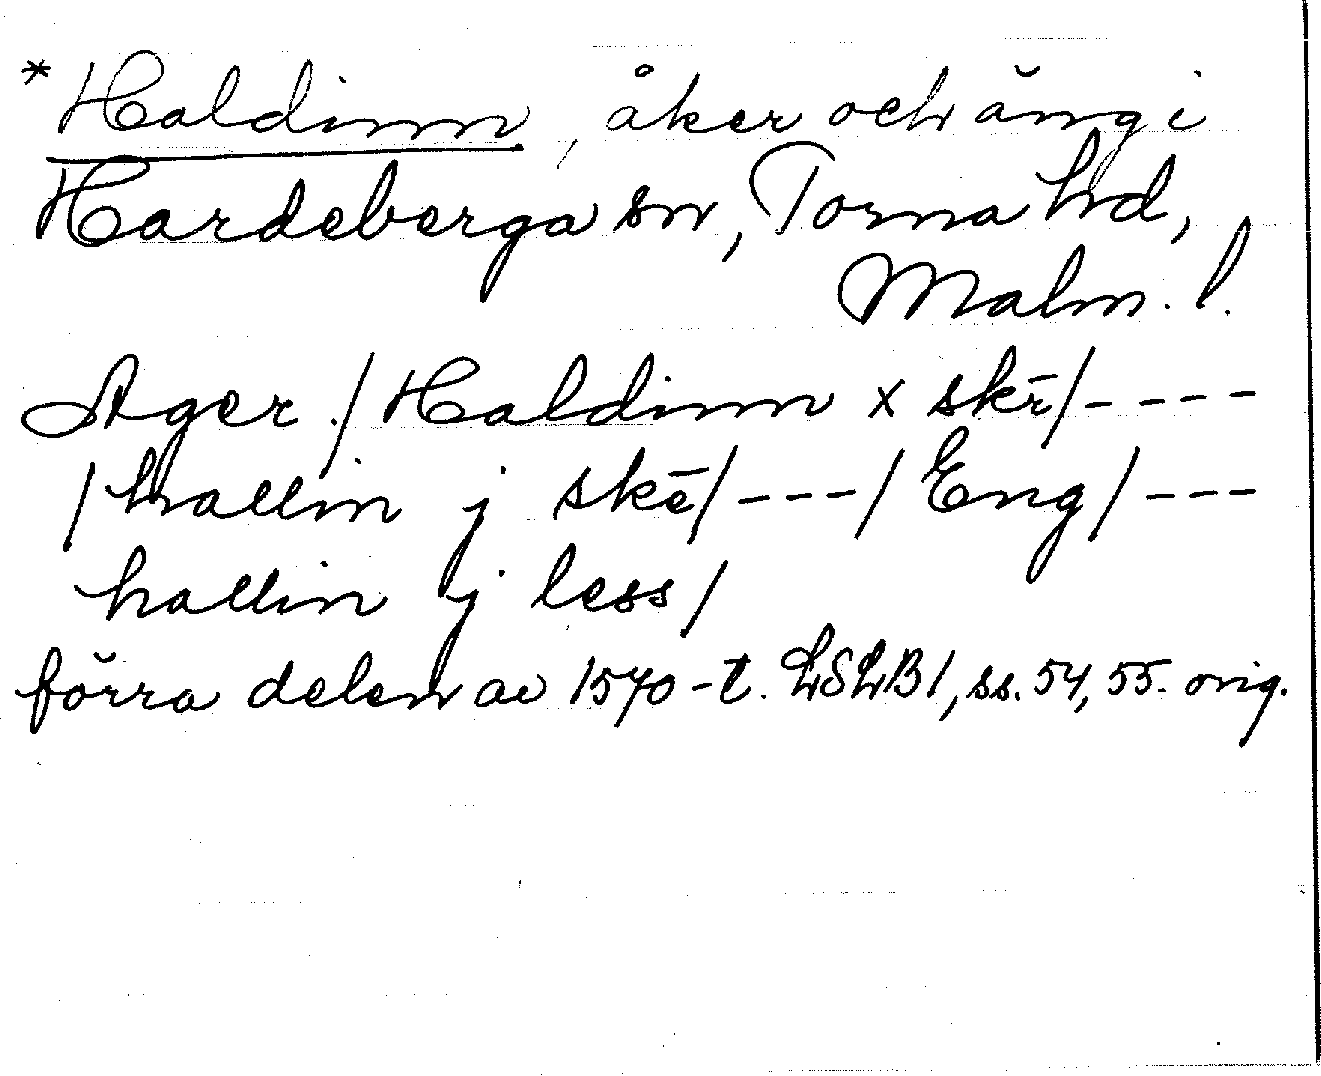 *Haldinn, åker och äng i
Hardeberga sn, Torna hd,
Malm. l.
Ager /Haldinn x skr̄/----
/hallin j skē/---/Eng/---
hallin j less/
förra delen av 1570-t. LSLB1, ss. 54, 55. orig.